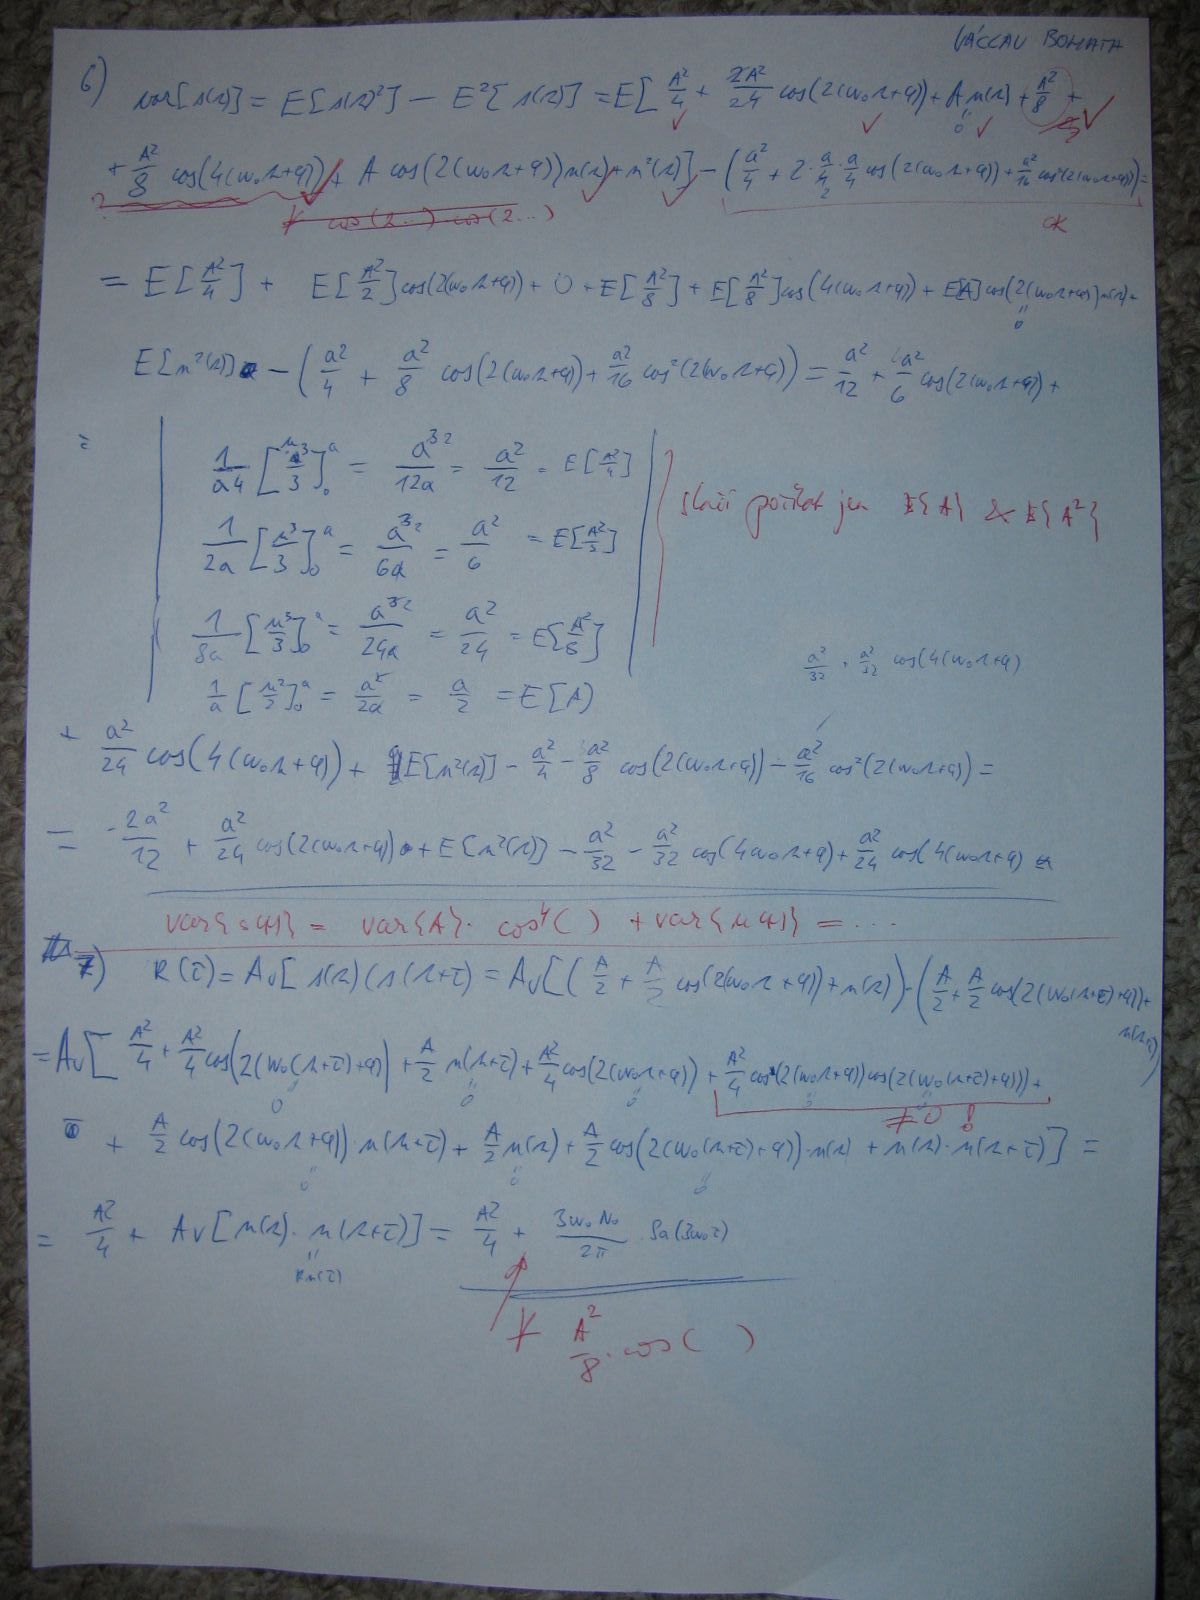 VÁCLAV BOHATA
6) var[s(t)] = E[s(t)²] − E²[s(t)] = E[A²/4 + 2A²/24 cos(2(ω₀t+φ)) + A n(t) + A²/8 +
0
+ A²/8 cos(4(ω₀t+φ)) + A cos(2(ω₀t+φ)) n(t) + n²(t)] − (a²/4 + 2·a/4·a/4 cos(2(ω₀t+φ)) + a²/16 cos²(2(ω₀t+φ))) =
?
+ cos(2...) cos(2...)
OK
= E[A²/4] + E[A²/2] cos(2(ω₀t+φ)) + 0 + E[A²/8] + E[A²/8] cos(4(ω₀t+φ)) + E[A] cos(2(ω₀t+φ)) n(t) +
0
E[n²(t)] − (a²/4 + a²/8 cos(2(ω₀t+φ)) + a²/16 cos²(2(ω₀t+φ))) = a²/12 + a²/6 cos(2(ω₀t+φ)) +
=
1/a4 [u³/3]₀ᵃ = a³/12a = a²/12 = E[A²/4]
stačí počítat jen E{A} & E{A²}
1/2a [u³/3]₀ᵃ = a³/6a = a²/6 = E[A²/2]
1/8a [u³/3]₀ᵃ = a³/24a = a²/24 = E[A²/8]
a²/32 + a²/32 cos(4(ω₀t+φ)
1/a [u²/2]₀ᵃ = a²/2a = a/2 = E[A]
+ a²/24 cos(4(ω₀t+φ)) + E[n²(t)] − a²/4 − a²/8 cos(2(ω₀t+φ)) − a²/16 cos²(2(ω₀t+φ)) =
= −2a²/12 + a²/24 cos(2(ω₀t+φ)) + E[n²(t)] − a²/32 − a²/32 cos(4ω₀t+φ) + a²/24 cos(4(ω₀t+φ)
var{s(t)} = var{A}· cos⁴( ) + var{n(t)} = ...
7) R(τ) = Av[s(t)(s(t+τ) = Av[(A/2 + A/2 cos(2(ω₀t+φ)) + n(t))·(A/2 + A/2 cos(2(ω₀(t+τ)+φ)) +
n(t+τ))
= Av[A²/4 + A²/4 cos(2(ω₀(t+τ)+φ)) + A/2 n(t+τ) + A²/4 cos(2(ω₀t+φ)) + A²/4 cos(2(ω₀t+φ)) cos(2(ω₀(t+τ)+φ))) +
0 0 0 0 0
≠ 0 !
+ A/2 cos(2(ω₀t+φ))·n(t+τ) + A/2 n(t) + A/2 cos(2(ω₀(t+τ)+φ))·n(t) + n(t)·n(t+τ)] =
0 0 0
= A²/4 + Av[n(t)·n(t+τ)] = A²/4 + 3ω₀N₀/2π · Sa(3ω₀τ)
Rn(τ)
+ A²/8 · cos( )